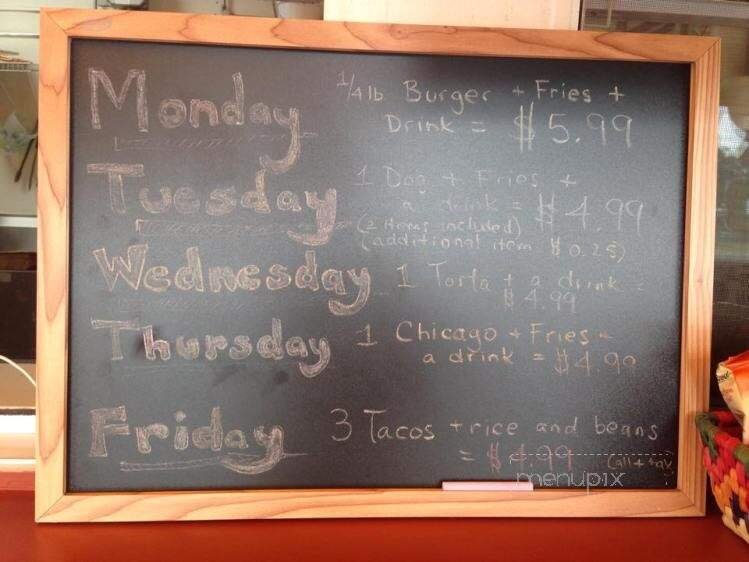 Monday
1/4lb Burger + Fries +
Drink = $5.99
Tuesday
1 Dog + Fries +
a drink = $4.99
(2 items included)
(additional item $0.25)
Wednesday
1 Torta + a drink =
$4.99
Thursday
1 Chicago + Fries +
a drink = $4.99
Friday
3 Tacos + rice and beans
= $4.99 (all + tax
menupix